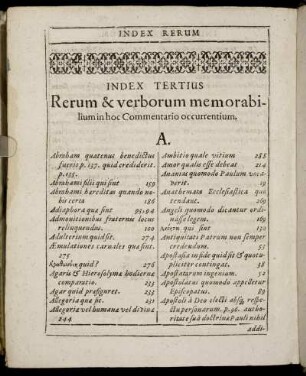 INDEX RERUM
INDEX TERTIUS
Rerum & verborum memorabi-
lium in hoc Commentario occurrentium.
A.
Abraham quatenus benedictus
fuerit p. 137. quid crediderit.
p. 135.
Abrahami filii qui sint 139
Abrahami hereditas quando no-
bis certa 186
Adiaphora quæ sint 95. 94
Admonitionibus fraternis locus
relinquendus. 100
Adulterium quid sit. 274
Æmulationes carnales quæ sint.
275
quid? 276
Agaris & Hierosolymæ hodiernæ
comparatio 233
Agar quid præfiguret. 233
Allegoria quæ sit. 231
Allegoria vel humana vel divina
244
Ambitio quale vitium 288
Amor qualis esse debeat 214
Ananias quomodo Paulum voca-
verit. 19
Anathemata Ecclesiastica qui
tendant. 269
Angeli quomodo dicantur ordi-
nasse legem. 169
qui sint 130
Antiquitati Patrum non semper
credendum. 55
Apostasia in fide quid sit & quam-
pliciter contingat. 38
Apostatarum ingenium. 52
Apostolatus quomodo appelletur
Episcopatus. 89
Apostoli à Deo electi absq; respe-
ctu personarum. p. 96. autho-
ritate & doctrina Pauli nihil
addi-